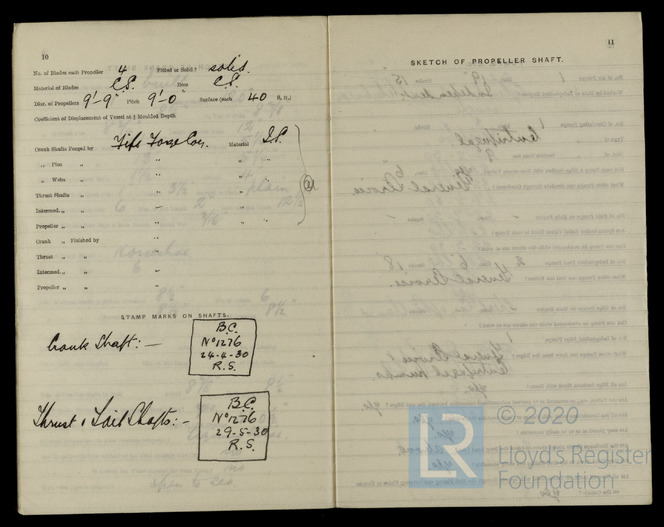 10
No. of Blades each Propeller 4 Fitted or Solid? solid.
Material of Blades C.I. Boss C.I.
Diar. of Propellers 9'-9" Pitch 9'-0" Surface (each 40 S. ft.)
Coefficient of Displacement of Vessel at ⅘ Moulded Depth
Crank Shafts Forged by Fife Forge Coy. Material I.S.
„ Pins „ „
„ Webs „ „
Thrust Shafts „ „
Intermed. „ „ „
Propeller „ „ „
Crank „ Finished by „
Thrust „ „ „
Intermed. „ „ „
Propeller „ „ „
STAMP MARKS ON SHAFTS.
Crank Shaft:—
B.C.
No 1276
24-4-30
R.S.
Thrust & Tail Shafts:-
B.C.
No 1276
29-5-30
R.S.
11
SKETCH OF PROPELLER SHAFT.
LR
© 2020
Lloyd's Register
Foundation